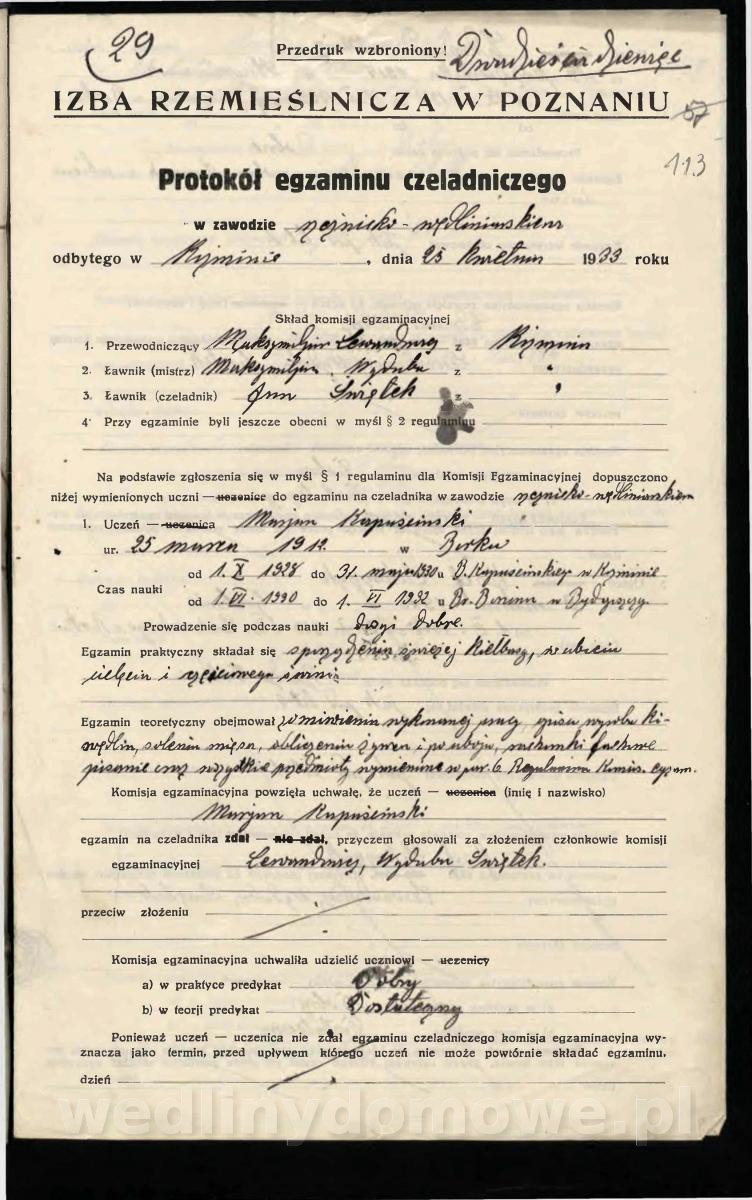 29
Przedruk wzbroniony!
Dwadzieścia dziewięć
IZBA RZEMIEŚLNICZA W POZNANIU
57
113
Protokół egzaminu czeladniczego
w zawodzie rzeźnicko-wędliniarskiem
odbytego w , dnia 25 kwietnia 1933 roku
Skład komisji egzaminacyjnej
1. Przewodniczący Maksymiljan z
2. Ławnik (mistrz) Maksymiljan Wyduba z "
3. Ławnik (czeladnik) Jan Świętek z "
4. Przy egzaminie byli jeszcze obecni w myśl § 2 regulaminu
Na podstawie zgłoszenia się w myśl § 1 regulaminu dla Komisji Egzaminacyjnej dopuszczono
niżej wymienionych uczni — uczenice do egzaminu na czeladnika w zawodzie rzeźnicko-wędliniarskiem
1. Uczeń — uczenica Marjan Kapuściński
ur. 25 marca 1912 w Borku
od 1. X 1928 do 31. maja 1930 u B. Kapuścińskiego w
Czas nauki
od 1. VI. 1930 do 1. VI 1932 u Br. w Bydgoszczy.
Prowadzenie się podczas nauki dosyć dobre.
Egzamin praktyczny składał się sporządzenia świeżej kiełbasy, w ubiciu
cielęcia i częściowego świnia
Egzamin teoretyczny obejmował omówienia wykonanej pracy opisu wyrobu ki-
wędlin, solenia mięsa, obliczenia żywca i po uboju, rachunki fachowe
pisanie oraz wszystkie przedmioty wymienione w par. 6. Regulamina Komis. egzam.
Komisja egzaminacyjna powzięła uchwałę, że uczeń — uczenica (imię i nazwisko)
Marjan Kapuściński
egzamin na czeladnika zdał — nie zdał, przyczem głosowali za złożeniem członkowie komisji
egzaminacyjnej Wyduba Świętek.
przeciw złożeniu
Komisja egzaminacyjna uchwaliła udzielić uczniowi — uczenicy
a) w praktyce predykat Dobry
b) w teorji predykat Dostateczny
Ponieważ uczeń — uczenica nie zdał egzaminu czeladniczego komisja egzaminacyjna wy-
znacza jako termin, przed upływem którego uczeń nie może powtórnie składać egzaminu,
dzień
wedlinydomowe.pl